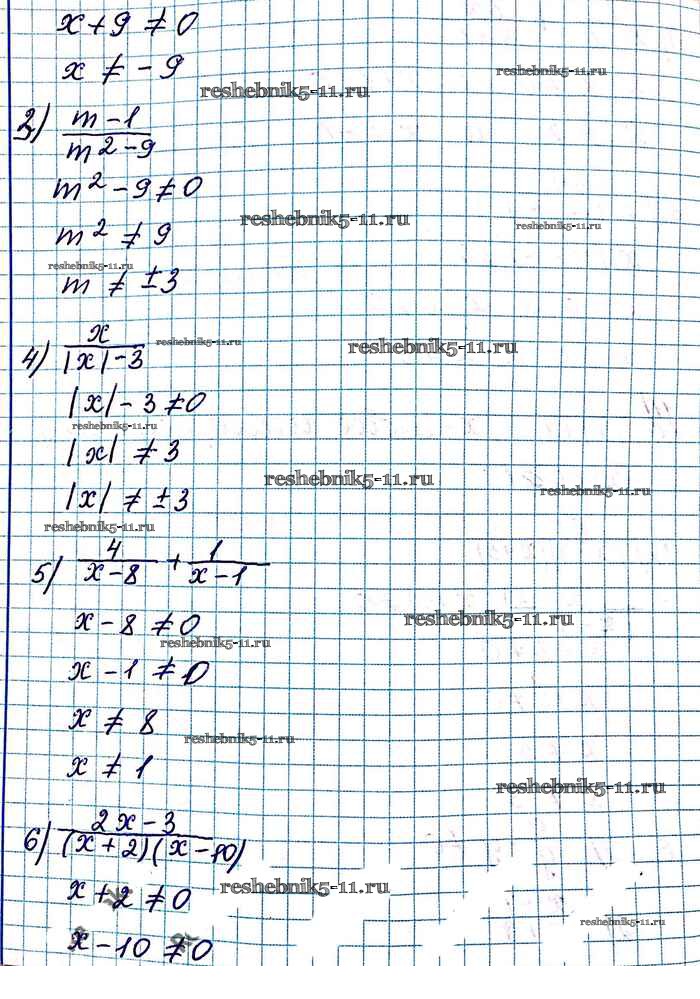 x + 9 ≠ 0
x ≠ - 9
reshebnik5-11.ru
reshebnik5-11.ru
3) m - 1 / m² - 9
m² - 9 ≠ 0
reshebnik5-11.ru
reshebnik5-11.ru
m² ≠ 9
reshebnik5-11.ru
m ≠ ±3
4) x / |x| - 3
reshebnik5-11.ru
reshebnik5-11.ru
|x| - 3 ≠ 0
reshebnik5-11.ru
|x| ≠ 3
reshebnik5-11.ru
|x| ≠ ±3
reshebnik5-11.ru
reshebnik5-11.ru
5) 4 / x - 8 + 1 / x - 1
x - 8 ≠ 0
reshebnik5-11.ru
reshebnik5-11.ru
x - 1 ≠ 0
x ≠ 8
reshebnik5-11.ru
x ≠ 1
reshebnik5-11.ru
6) 2x - 3 / (x + 2)(x - 10)
x + 2 ≠ 0
reshebnik5-11.ru
reshebnik5-11.ru
x - 10 ≠ 0